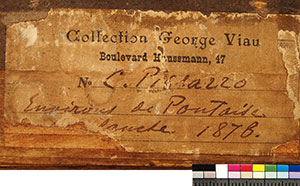 Collection George Viau
Boulevard Haussmann, 47
No C. Pissarro
Environs de Pontoise
1876.